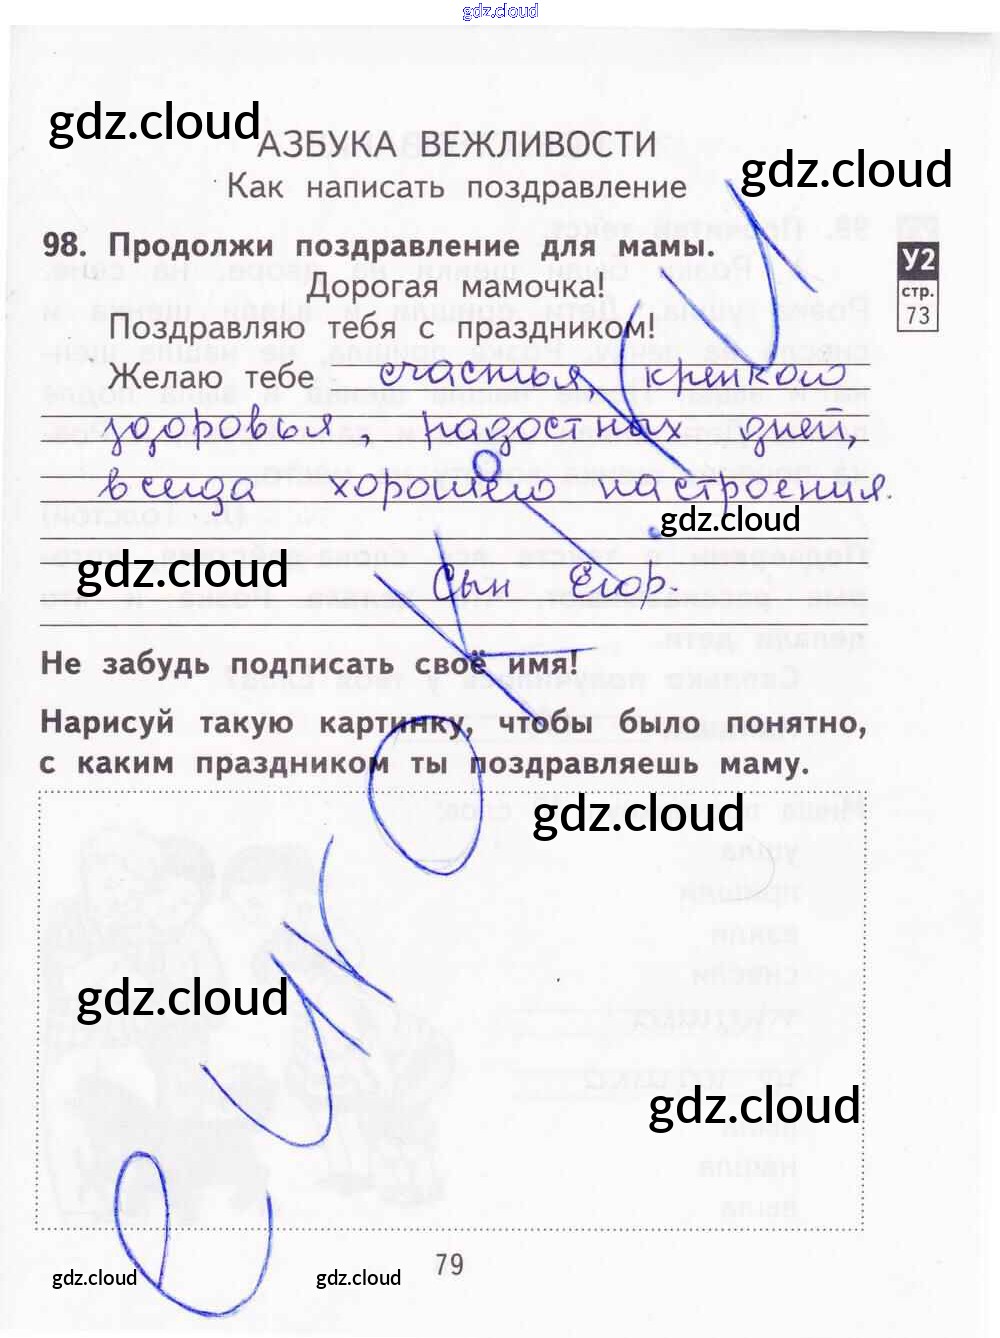 gdz.cloud
gdz.cloud
АЗБУКА ВЕЖЛИВОСТИ
gdz.cloud
Как написать поздравление
98. Продолжи поздравление для мамы.
У2
стр.
73
Дорогая мамочка!
Поздравляю тебя с праздником!
Желаю тебе счастья, крепкого
здоровья, радостных дней,
всегда хорошего настроения.
gdz.cloud
gdz.cloud
Сын Егор.
Не забудь подписать своё имя!
Нарисуй такую картинку, чтобы было понятно,
с каким праздником ты поздравляешь маму.
gdz.cloud
gdz.cloud
gdz.cloud
79
gdz.cloud
gdz.cloud